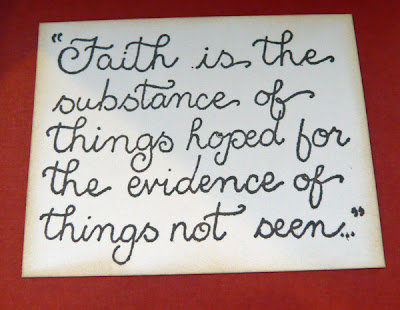 "Faith is the
substance of
things hoped for
the evidence of
things not seen..."